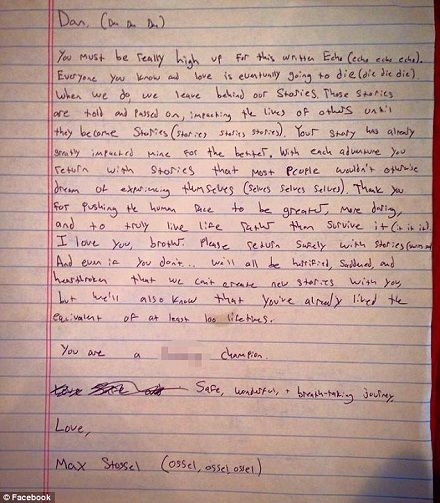 Dan, (Dan Dan Dan)
You must be really high up for this written Echo (echo echo echo).
Everyone you know and love is eventually going to die (die die die)
When we do, we leave behind our Stories. Those Stories
are told and passed on, impacting the lives of others until
they become Stories (stories stories stories). Your story has already
greatly impacted mine for the better. With each adventure you
return with stories that most people wouldn't otherwise
dream of experiencing themselves (selves selves selves). Thank you
for pushing the human race to be greater, more daring,
and to truly live life rather than survive it (it it it).
I love you, brother. Please return safely with stories
And even if you don't... we'll all be horrified, saddened, and
heartbroken that we can't create new stories with you,
but we'll also know that you've already lived the
equivalent of at least 100 lifetimes.
You are a champion.
Safe, wonderful, + breath-taking journey,
Love,
Max Stossel (ossel, ossel ossel)
© Facebook